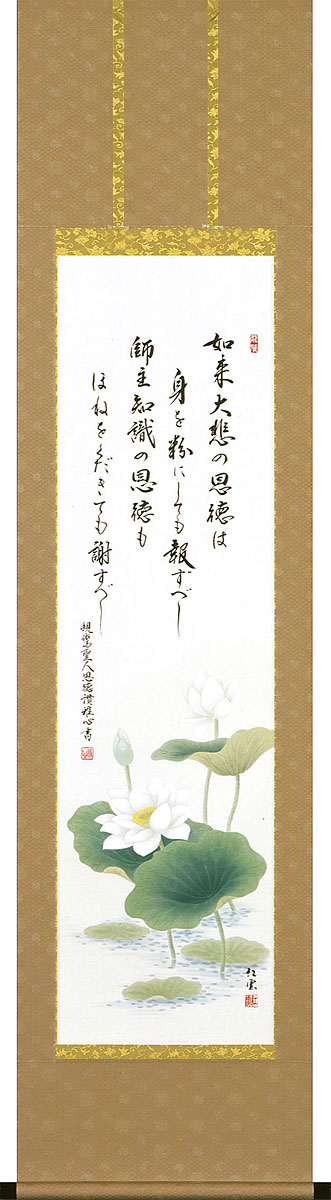 如来大悲の恩徳は
身を粉にしても報ずべし
師主知識の恩徳も
ほねをくだきても謝すべし
親鸞聖人恩徳讃 雅心書